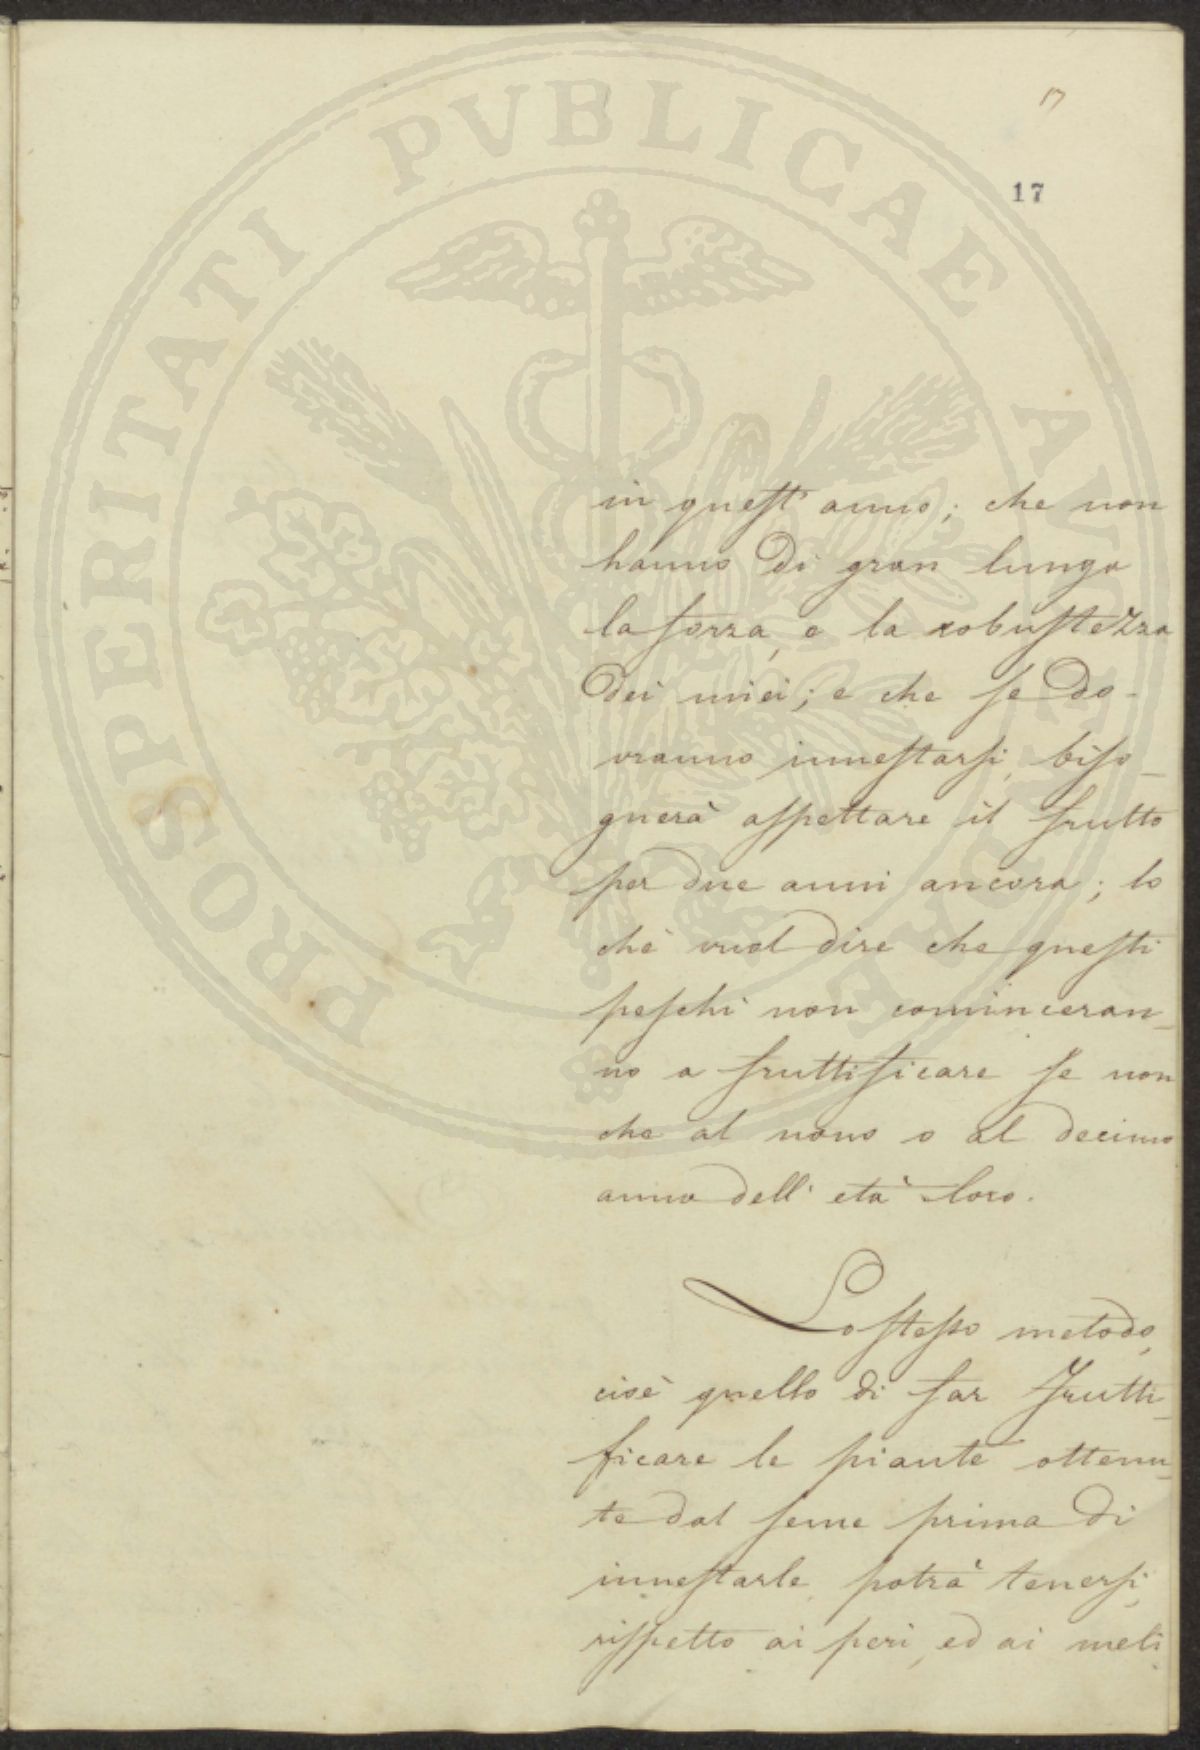 17
17
in quest' anno; che non
hanno di gran lunga
la forza, e la robustezza
dei miei; e che se do-
vranno innestarsi, biso-
gnerà aspettare il frutto
per due anni ancora; lo
chè vuol dire che questi
peschi non cominceran-
no a fruttificare se non
che al nono o al decimo
anno dell' età loro.
Lo stesso metodo,
cioè quello di far frutti-
ficare le piante ottenu-
te dal seme prima di
innestarle, potrà tenersi,
rispetto ai peri, ed ai meli
PROSPERITATI PVBLICAE AVGENDAE